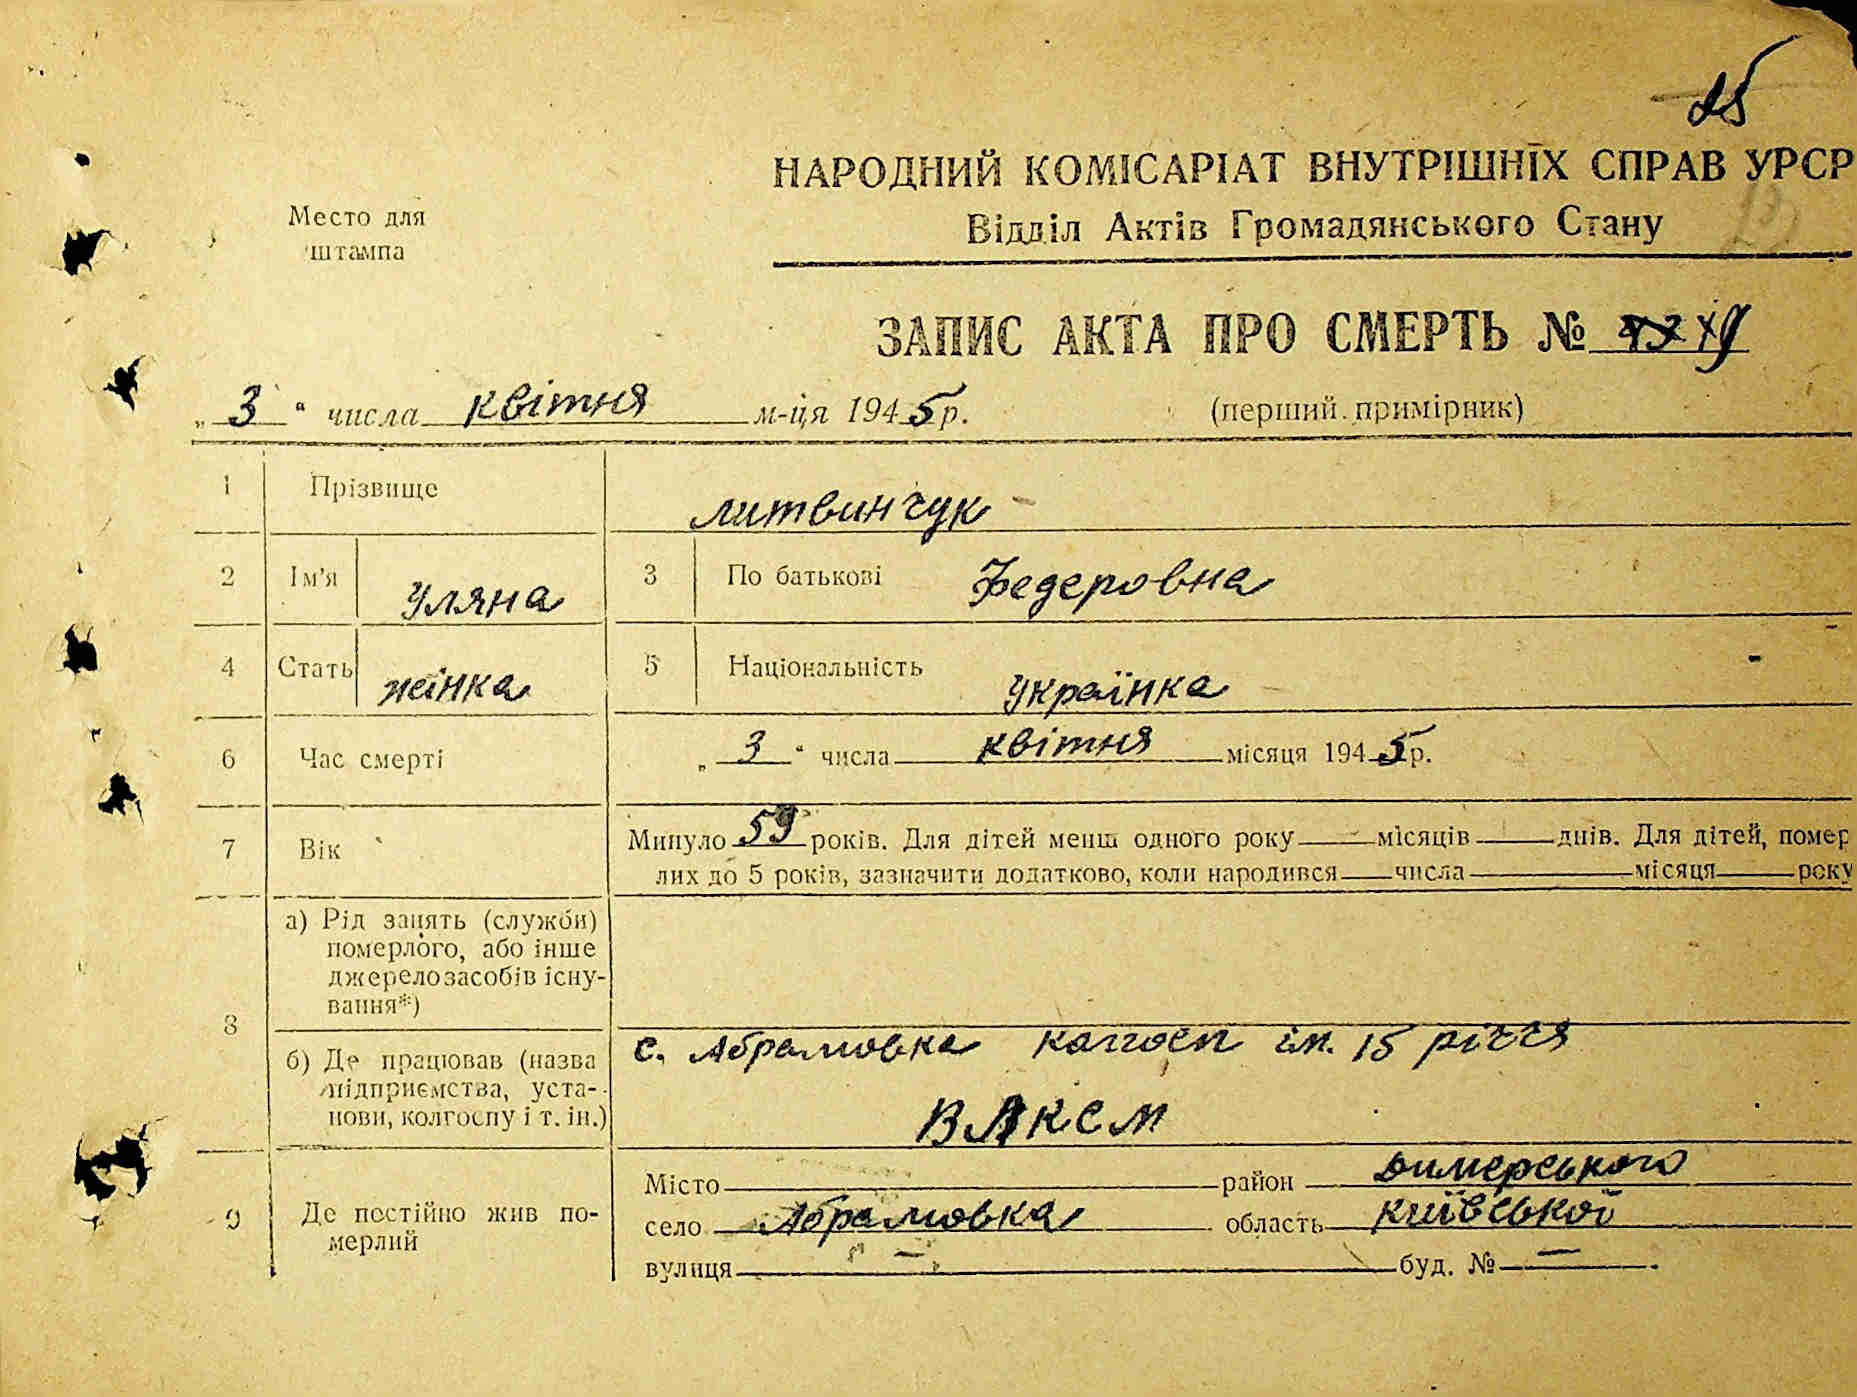 25
НАРОДНИЙ КОМІСАРІАТ ВНУТРІШНІХ СПРАВ УРСР
Место для штампа
Відділ Актів Громадянського Стану
ЗАПИС АКТА ПРО СМЕРТЬ №
„3“ числа квітня м-ця 1945р. (перший примірник)
1 Прізвище Литвинчук
2 Ім'я Уляна 3 По батькові Федеровна
4 Стать жінка 5 Національність Українка
6 Час смерті „3“ числа квітня місяця 1945р.
7 Вік Минуло 59 років. Для дітей менш одного року місяців днів. Для дітей, помер
лих до 5 років, зазначити додатково, коли народився числа місяця року
8 а) Рід занять (служби)
померлого, або інше
джерело засобів існу-
вання*)
б) Де працював (назва
підприємства, уста-
нови, колгоспу і т. ін.)
с. Абрамовка колгосп ім. 15 річчя
ВЛКСМ
9 Де постійно жив по-
мерлий
Місто район Димерського
село Абрамовка область Київської
вулиця — буд. № —